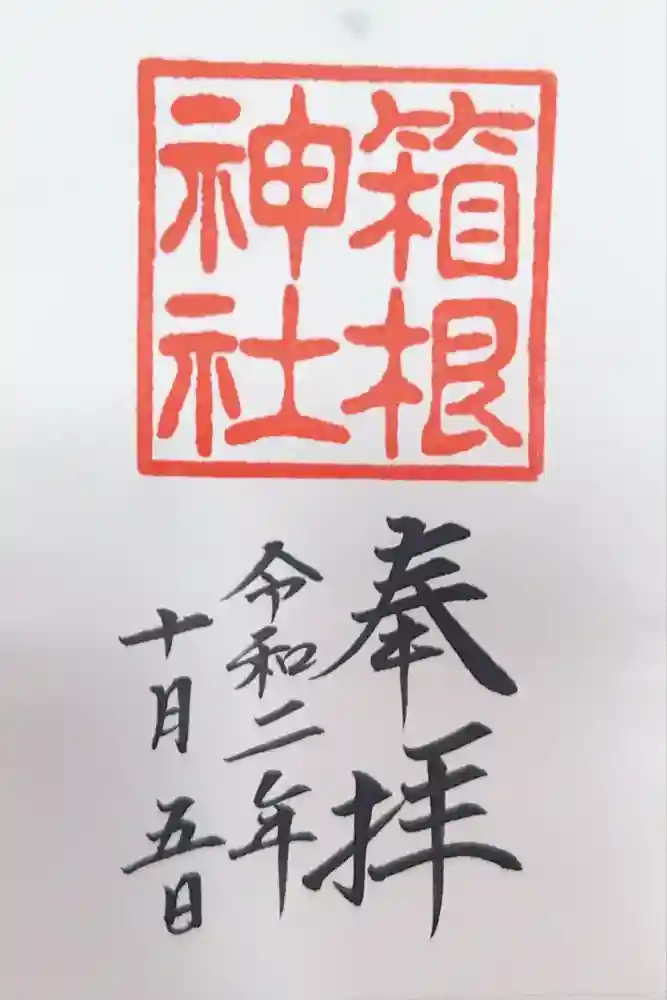 箱根
神社
奉拝
令和二年
十月五日